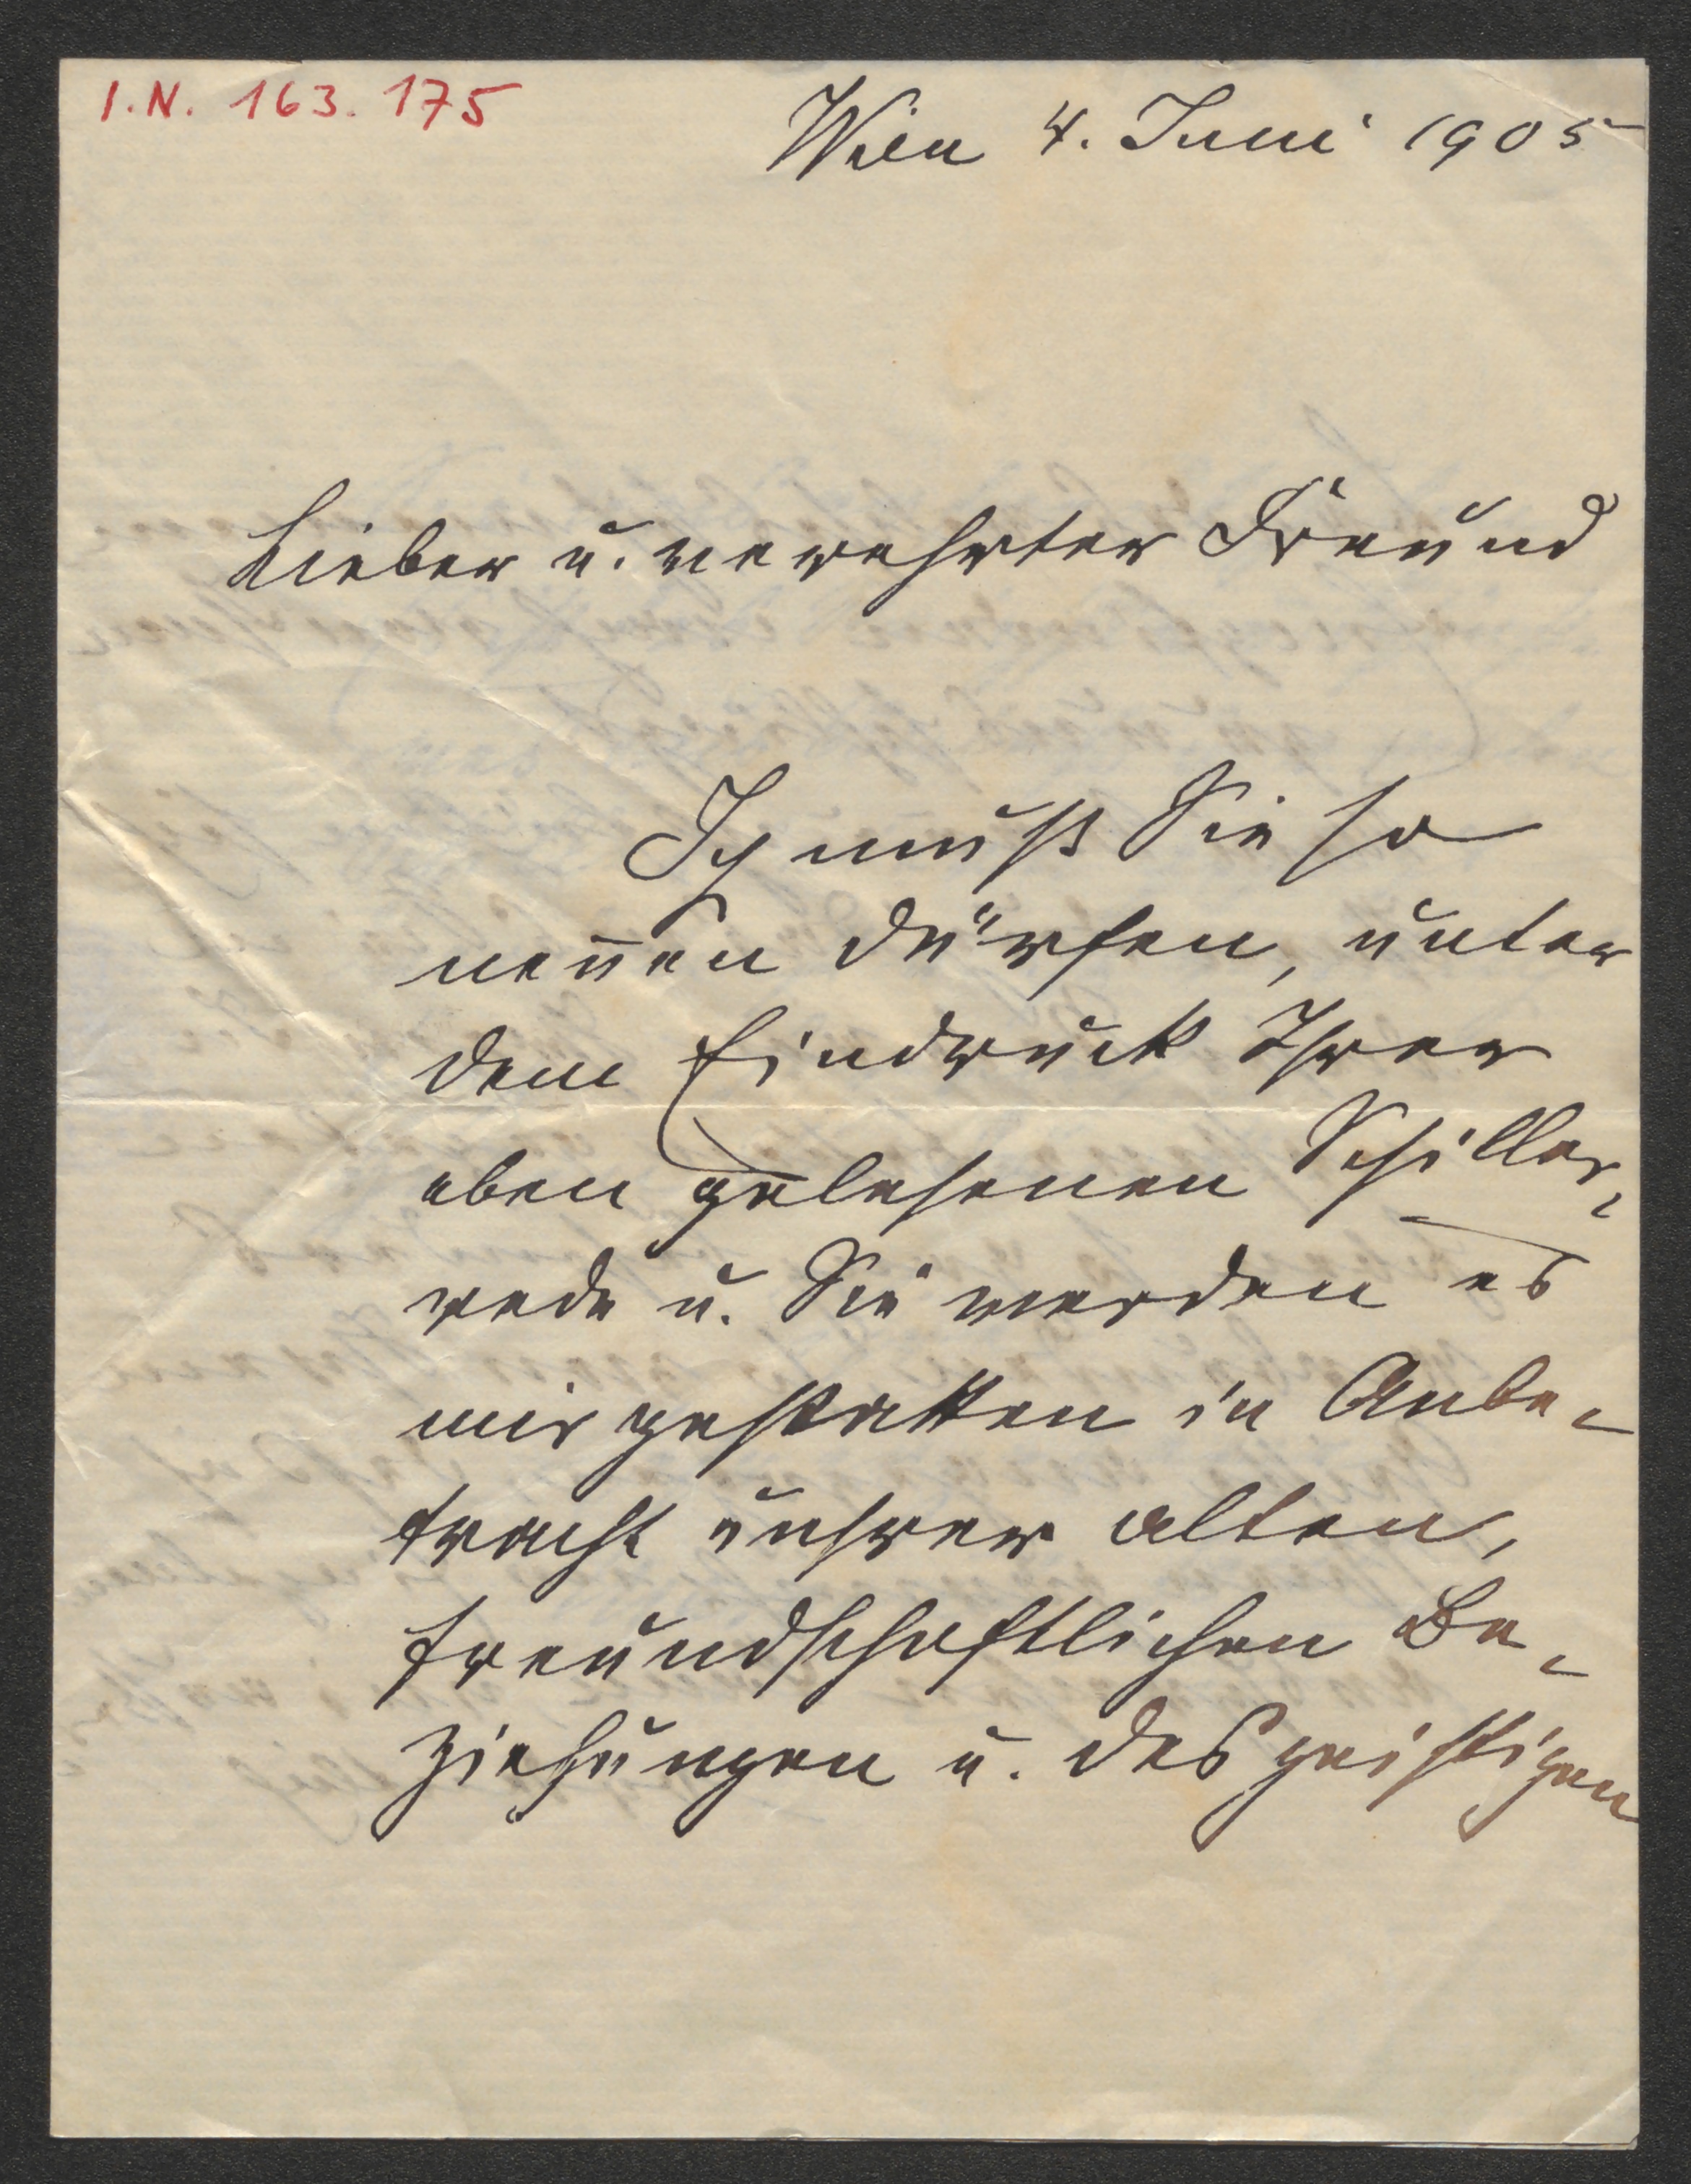 I.N. 163.175
Wien 4. Juni 1905
Lieber u. verehrter Freund
Ich muß Sie so
neñen dürfen, unter
dem Eindruck Ihrer
eben gelesenen Schiller-
rede u. Sie werden es
mir gestatten in Anbe-
tracht unsrer alten,
freundschaftlichen Be-
ziehungen u. des geistigen